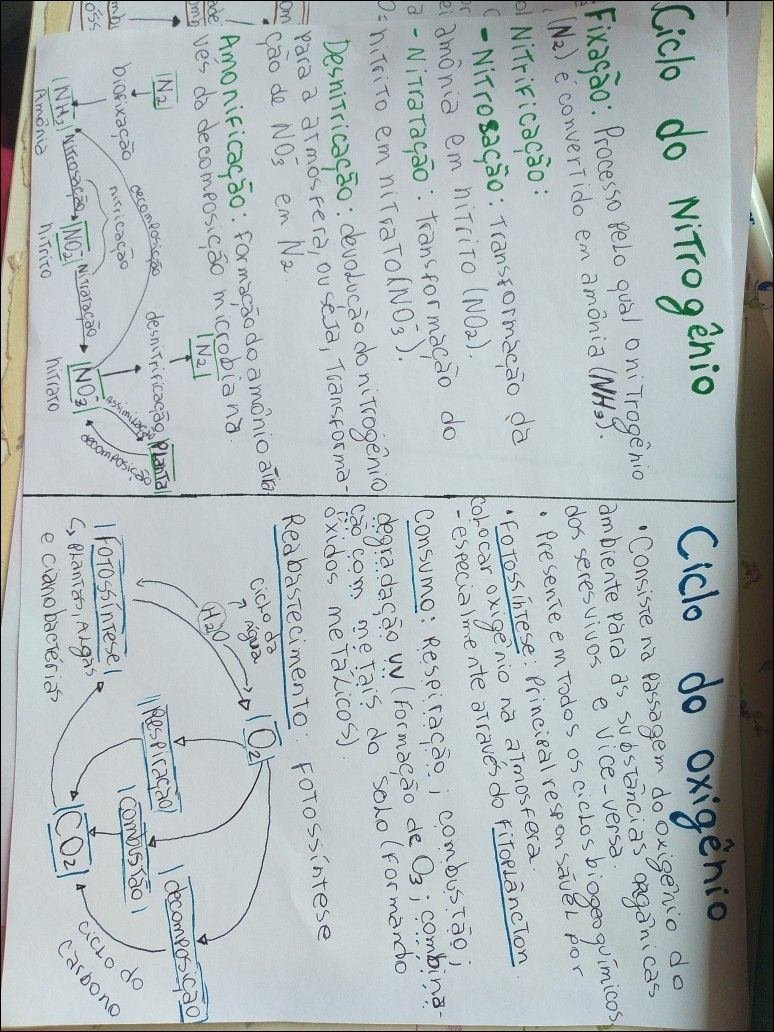 Ciclo do Nitrogênio
Fixação: Processo pelo qual o nitrogênio
(N₂) é convertido em amônia (NH₃).
Nitrificação:
- Nitrosação: Transformação da
amônia em nitrito (NO₂).
- Nitratação: Transformação do
nitrito em nitrato (NO₃⁻).
Desnitricação: devolução do nitrogênio
para a atmosfera, ou seja, Transforma-
ção de NO₃⁻ em N₂.
Amonificação: formação do amônio atra
vés da decomposição microbiana.
|N₂|
biofixação
|NH₃|
Amônia
Nitrosação
nitricação
decomposição
|NO₂⁻|
nitrito
Nitratação
|N₂|
desnitrificação
|NO₃⁻|
nitrato
assimilação
decomposição
Planta
Ciclo do oxigênio
• Consiste na passagem do oxigênio do
ambiente para as substâncias orgânicas
dos seres vivos e vice-versa.
• Presente em todos os ciclos biogeoquímicos
• Fotossíntese: Principal responsável por
colocar oxigênio na atmosfera.
- especialmente através do fitoplâncton.
Consumo: Respiração; combustão;
degradação UV (formação de O₃; combina-
ção com metais do solo (formando
óxidos metálicos).
Reabastecimento: Fotossíntese
ciclo da
água
H₂O
|O₂|
|Fotossíntese|
↳ plantas, Algas
e cianobactérias
|Respiração|
|combustão|
|decomposição|
|CO₂|
ciclo do
carbono